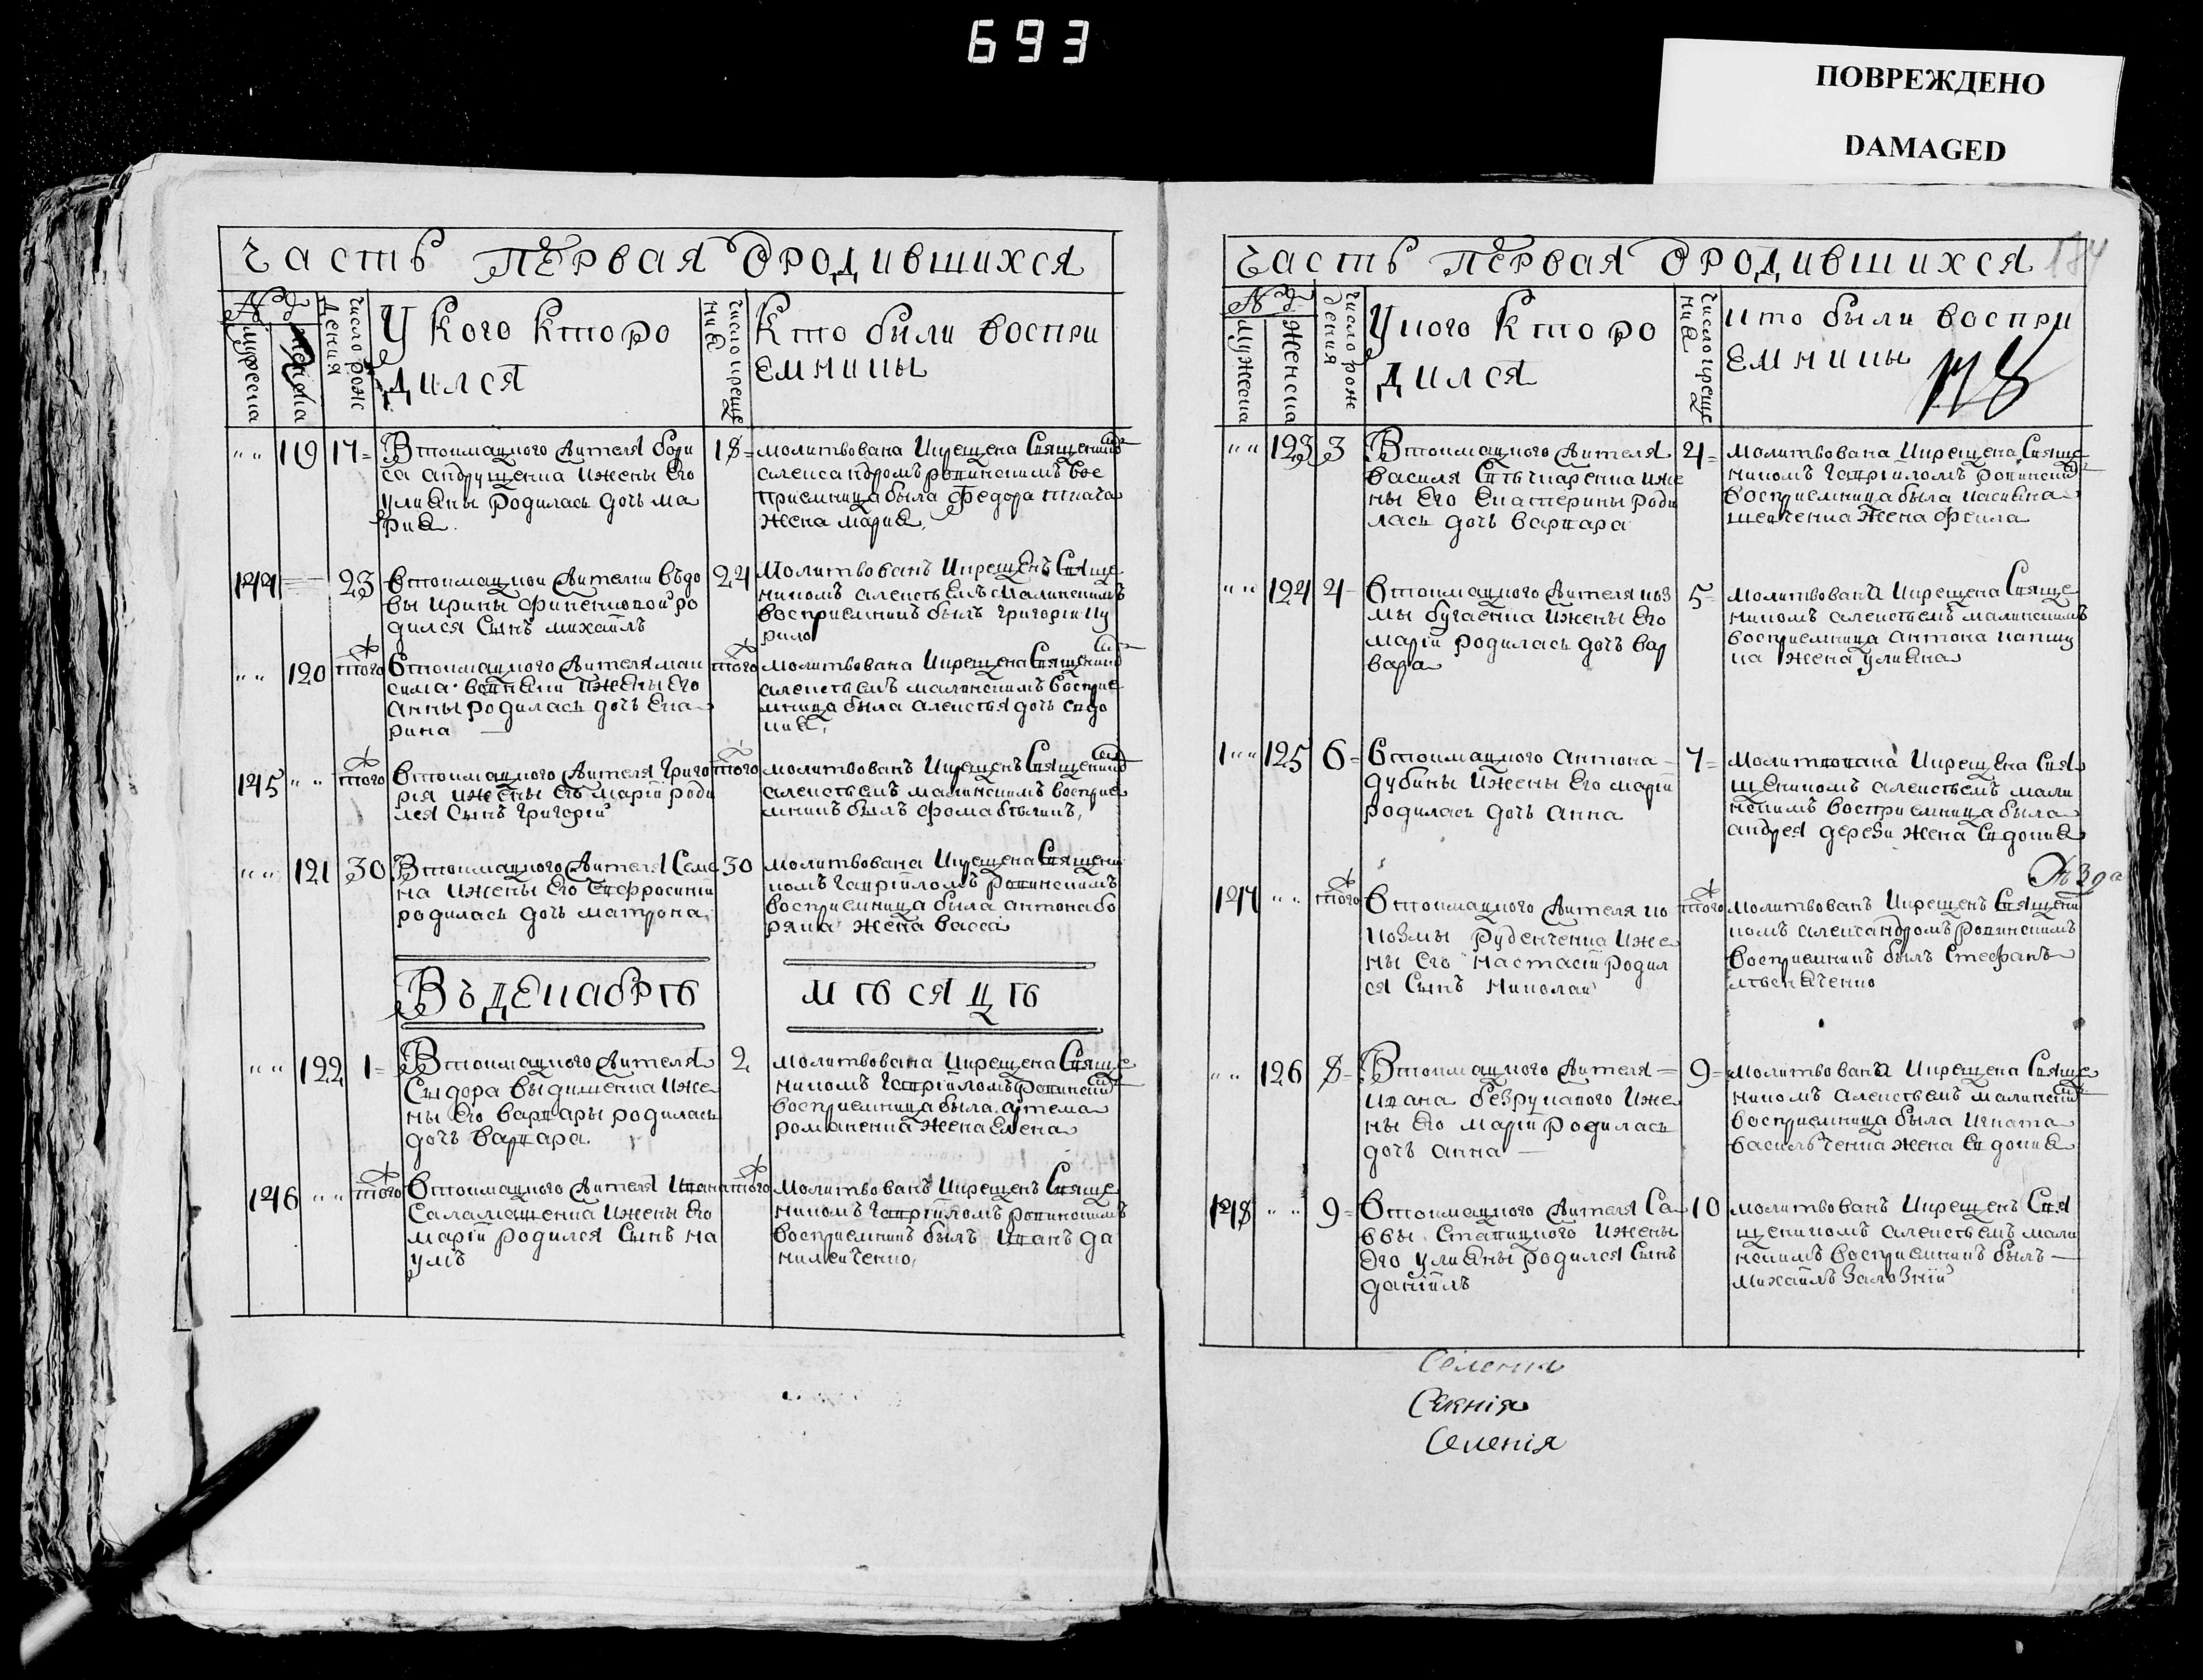 693
ПОВРЕЖДЕНО
DAMAGED
Часть первая ородившихся
№
мужеска
женска
число рож
дения
У кого кто ро
дился
число креще
ния
Кто были воспри
емницы
" " 119 17 Втоймацкого жителя бори
са андрущенка ижены его
улияны родилась дочь ма
рия
18 молитвована икрещена Священник
алексанъдромъ ровинскимъ вос
приемница была федора ткача
жена мария,
144 23 втоймацкои жителки въдо
вы ирины филенковой ро
дился Сынъ михаилъ
24 Молитвованъ икрещенъ Свяще
никомъ алексѣемъ малинскимъ
восприемникъ былъ григорий ку
рило
" " 120 того втоймацкого жителя мак
сима ижены его
анны родилась дочь ека
рина
того молитвована икрещена Священник
алексѣемъ малинскимъ восприе
мница была алексѣя дочь евдо
кия,
145 " " того втоймацкого жителя григо
рия ижены его марïи роди
лся Сынъ григорïй
того молитвованъ икрещенъ Священник
алексѣемъ малинскимъ восприе
мникъ былъ фома
" " 121 30 Втоймацкого жителя Семе
на ижены его евфросинïи
родилась дочь матрона,
30 молитвована икрещена Священи
комъ гаврïиломъ ровинскимъ
восприемница была антона бо
ряка жена васса
Въ декабрѣ мѣсяцѣ
" " 122 1 Втоймацкого жителя
Сидора ижe
ны его варвары родилась
дочь варвара
2 молитвована икрещена Свяще
никомъ гаврïиломъ ровинским
восприемница была артема
романенка жена елена
146 " " того втоймацкого жителя ивана
Саламащенка ижены его
марïи родился Сынъ на
умъ
того молитвованъ икрещенъ Свяще
никомъ гаврïиломъ ровинскимъ
восприемникъ былъ иванъ да
нилейченко,
Часть первая ородившихся 184
№
мужеска
женска
число рож
дения
У кого кто ро
дился
число креще
ния
кто были воспри
емницы
178
" " 123 3 Втоймацкого жителя
василя ижe
ны его екатерины роди
лась дочь варвара
4 молитвована икрещена Свяще
никомъ гаврïиломъ ровинским
восприемница была касияна
шевченка жена фекла
" " 124 4 втоймацкого жителя коз
мы бугаенка ижены его
марïи родилась дочь вар
вара
5 молитвована икрещена Свяще
никомъ алексѣемъ малинскимъ
восприемница антона капщу
ка жена улияна
1 " " 125 6 втоймацкого антона
дубины ижены его марïи
родилась дочь анна
7 молитвована икрещена Свя
щеникомъ алексѣемъ мали
нскимъ восприемница была
андрея дерези жена Евдокия
147 " " того втоймацкого жителя ко
козмы руденченка ижe
ны его настасïи родил
ся Сынъ николай
того молитвованъ икрещенъ Священи
комъ александромъ ровинскимъ
восприемникъ былъ Стефанъ
" " 126 8 Втоймацкого жителя
ивана безрукавого ижe
ны его марïи родилась
дочь анна
9 молитвована икрещена Свяще
никомъ алексѣемъ малинским
восприемница была игната
василъченка жена Евдокия
148 " " 9 втоймацкого жителя Са
ввы Ставицкого ижены
его улияны родился Сынъ
данïилъ
10 молитвованъ икрещенъ Свя
щеникомъ алексѣемъ мали
нскимъ восприемникъ былъ
михаилъ залозний
Селения
Селения
Селенія